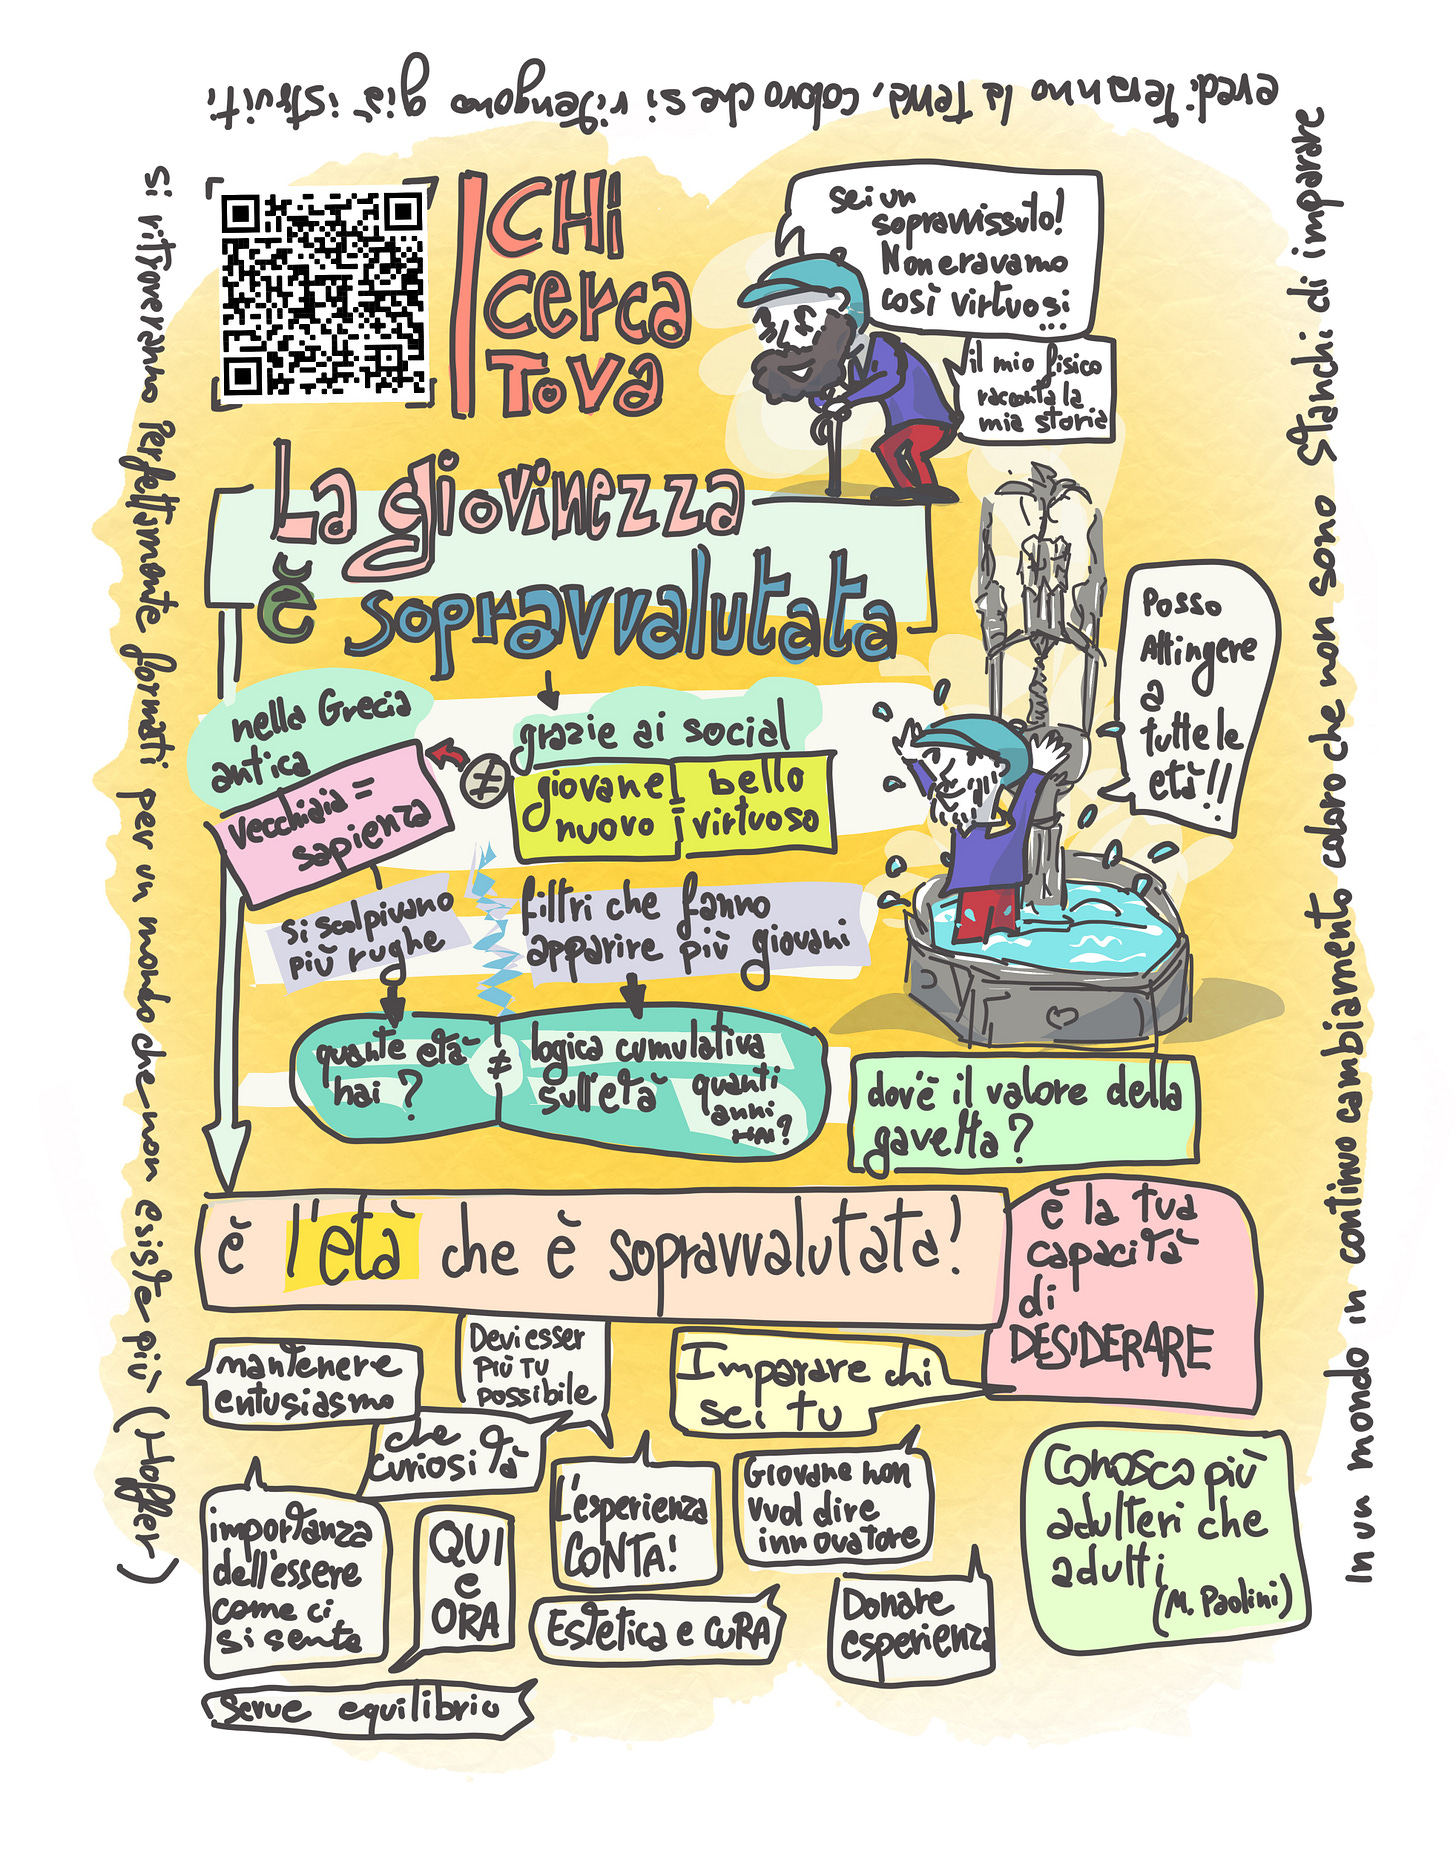 In un mondo in continuo cambiamento coloro che non sono stanchi di imparare
erediteranno la Terra, coloro che si ritengono già istruiti
si ritroveranno perfettamente formati per un mondo che non esiste più (Hoffer)
CHI
cerca
Tova
sei un
sopravvissuto!
Non eravamo
così virtuosi
...
il mio fisico
racconta la
mia storia
La giovinezza
è sopravvalutata
nella Grecia
antica
vecchiaia =
sapienza
≠
grazie ai social
giovane
nuovo
=
bello
virtuoso
Posso
Attingere
a
tutte le
età!!
si scolpivano
più rughe
filtri che fanno
apparire più giovani
quante età
hai?
≠
logica cumulativa
sull'età
quanti
anni
HAI?
dov'è il valore della
gavetta?
è l'età che è sopravvalutata!
è la tua
capacità
di
DESIDERARE
mantenere
entusiasmo
Devi esser
più TU
possibile
Imparare chi
sei tu
che
curiosità
importanza
dell'essere
come ci
si sente
QUI
e
ORA
L'esperienza
CONTA!
Giovane non
vuol dire
innovatore
Conosco più
adulteri che
adulti
(M. Paolini)
Estetica e CURA
Donare
esperienza
Serve equilibrio